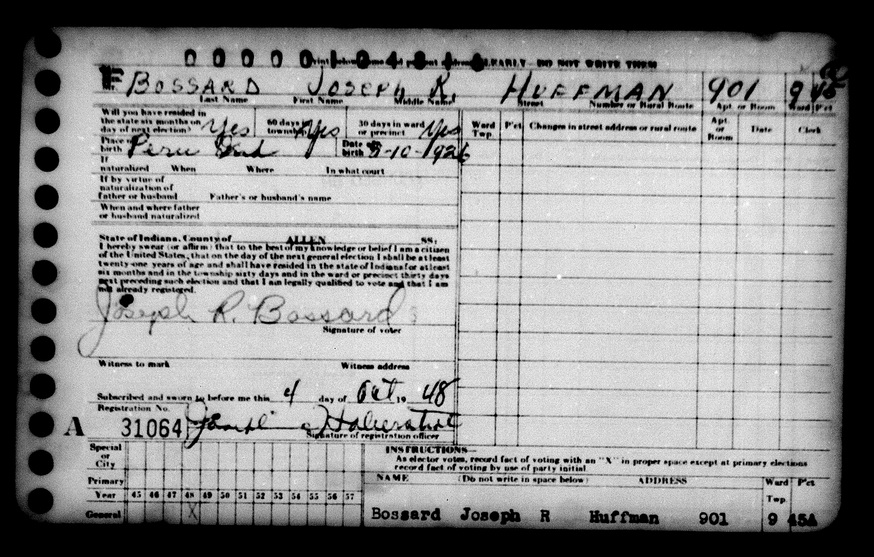 DO NOT WRITE THEM
BOSSARD JOSEPH R. HUFFMAN 901 9 45
Last Name First Name Middle Name Street Number or Rural Route Apt. or Room Ward P'ct
Will you have resided in the state six months on day of next election? Yes 60 days in township Yes 30 days in ward or precinct Yes
Ward Twp. P'ct Changes in street address or rural route Apt. or Room Date Clerk
Place of birth Peru Ind Date of birth 3-10-1926
If naturalized When Where In what court
If by virtue of naturalization of father or husband Father's or husband's name
When and where father or husband naturalized
State of Indiana, County of ALLEN SS:
I hereby swear (or affirm) that to the best of my knowledge or belief I am a citizen
of the United States, that on the day of the next general election I shall be at least
twenty-one years of age and shall have resided in the state of Indiana for at least
six months and in the township sixty days and in the ward or precinct thirty days
next preceding such election and that I am legally qualified to vote and that I am
not already registered.
Joseph R. Bossard
Signature of voter
Witness to mark Witness address
Subscribed and sworn to before me this 4 day of Oct 19 48
Registration No.
A 31064 Joseph
Signature of registration officer
Special or City
Primary
Year 45 46 47 48 49 50 51 52 53 54 55 56 57
General X
INSTRUCTIONS—
As elector votes, record fact of voting with an "X" in proper space except at primary elections
record fact of voting by use of party initial
NAME (Do not write in space below) ADDRESS Ward Twp. P'ct
Bossard Joseph R Huffman 901 9 45A